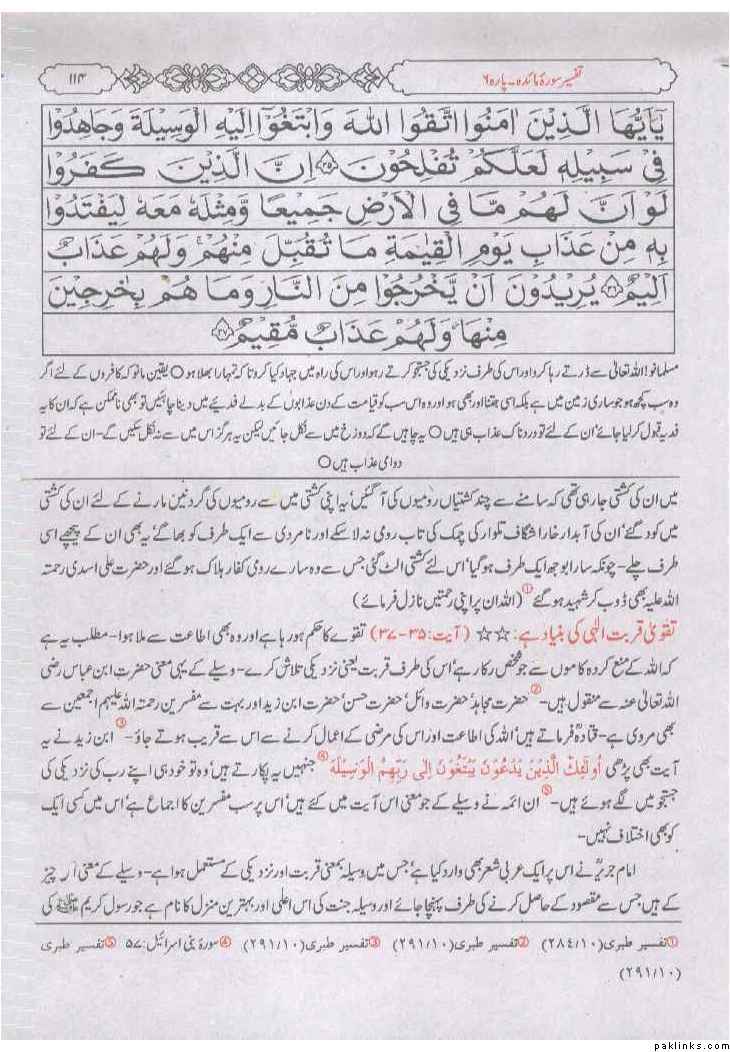 تفسیر سورۂ مائدہ۔ پارہ ۶
۱۱۴
يٰۤاَيُّهَا الَّذِيْنَ اٰمَنُوا اتَّقُوا اللّٰهَ وَابْتَغُوْۤا اِلَيْهِ الْوَسِيْلَةَ وَجَاهِدُوْا
فِيْ سَبِيْلِهٖ لَعَلَّكُمْ تُفْلِحُوْنَ ۝۳۵ اِنَّ الَّذِيْنَ كَفَرُوْا
لَوْ اَنَّ لَهُمْ مَّا فِي الْاَرْضِ جَمِيْعًا وَّمِثْلَهٗ مَعَهٗ لِيَفْتَدُوْا
بِهٖ مِنْ عَذَابِ يَوْمِ الْقِيٰمَةِ مَا تُقُبِّلَ مِنْهُمْ ۚ وَلَهُمْ عَذَابٌ
اَلِيْمٌ ۝۳۶ يُرِيْدُوْنَ اَنْ يَّخْرُجُوْا مِنَ النَّارِ وَمَا هُمْ بِخٰرِجِيْنَ
مِنْهَا ۫ وَلَهُمْ عَذَابٌ مُّقِيْمٌ ۝۳۷
مسلمانو! اللہ تعالیٰ سے ڈرتے رہا کرو اور اس کی طرف نزدیکی کی جستجو کرتے رہو اور اس کی راہ میں جہاد کیا کرو تا کہ تمہارا بھلا ہو ○ یقین مانو کہ کافروں کے لئے اگر
وہ سب کچھ ہو جو ساری زمین میں ہے بلکہ اسی جتنا اور بھی ہو اور وہ اس سب کو قیامت کے دن عذابوں کے بدلے فدیئے میں دینا چاہئیں تو بھی ناممکن ہے کہ ان کا یہ
فدیہ قبول کر لیا جائے‘ ان کے لئے تو دردناک عذاب ہی ہیں ○ یہ چاہیں گے کہ دوزخ میں سے نکل جائیں لیکن یہ ہرگز اس میں سے نہ نکل سکیں گے۔ ان کے لئے تو
دوامی عذاب ہیں ○
میں ان کی کشتی جا رہی تھی کہ سامنے سے چند کشتیاں رومیوں کی آ گئیں‘ یہ اپنی کشتی میں سے رومیوں کی گردنیں مارنے کے لئے ان کی کشتی
میں کود گئے‘ ان کی آبدار خارا شگاف تلوار کی چمک کی تاب رومی نہ لا سکے اور نامردی سے ایک طرف کو بھاگے‘ یہ بھی ان کے پیچھے اسی
طرف چلے۔ چونکہ سارا بوجھ ایک طرف ہو گیا‘ اس لئے کشتی الٹ گئی جس سے وہ سارے رومی کفار ہلاک ہو گئے اور حضرت علی اسدی رحمتہ
اللہ علیہ بھی ڈوب کر شہید ہو گئے① (اللہ ان پر اپنی رحمتیں نازل فرمائے)
تقویٰ قربت الٰہی کی بنیاد ہے: ☆☆ (آیت: ۳۵-۳۷) تقوے کا حکم ہو رہا ہے اور وہ بھی اطاعت سے ملا ہوا۔ مطلب یہ ہے
کہ اللہ کے منع کردہ کاموں سے جو شخص رکا رہے‘ اس کی طرف قربت یعنی نزدیکی تلاش کرے۔ وسیلے کے یہی معنی حضرت ابن عباس رضی
اللہ تعالیٰ عنہ سے منقول ہیں۔② حضرت مجاہد‘ حضرت وائل‘ حضرت حسن‘ حضرت ابن زید اور بہت سے مفسرین رحمتہ اللہ علیہم اجمعین سے
بھی مروی ہے۔ قتادہؒ فرماتے ہیں‘ اللہ کی اطاعت اور اس کی مرضی کے اعمال کرنے سے اس سے قریب ہوتے جاؤ۔③ ابن زید نے یہ
آیت بھی پڑھی اُولٰٓئِكَ الَّذِيْنَ يَدْعُوْنَ يَبْتَغُوْنَ اِلٰى رَبِّهِمُ الْوَسِيْلَةَ④ جنہیں یہ پکارتے ہیں‘ وہ تو خود ہی اپنے رب کی نزدیکی کی
جستجو میں لگے ہوئے ہیں۔⑤ ان ائمہ نے وسیلے کے جو معنی اس آیت میں کئے ہیں‘ اس پر سب مفسرین کا اجماع ہے‘ اس میں کسی ایک
کو بھی اختلاف نہیں۔
امام جریرؒ نے اس پر ایک عربی شعر بھی وارد کیا ہے‘ جس میں وسیلہ بمعنی قربت اور نزدیکی کے مستعمل ہوا ہے۔ وسیلے کے معنی چیز
کے ہیں جس سے مقصود کے حاصل کرنے کی طرف پہنچا جائے اور وسیلہ جنت کی اس اعلیٰ اور بہترین منزل کا نام ہے جو رسول کریم ﷺ کی
①تفسیر طبری (۲۸۴/۱۰) ②تفسیر طبری (۲۹۱/۱۰) ③تفسیر طبری (۲۹۱/۱۰) ④سورۂ بنی اسرائیل: ۵۷ ⑤تفسیر طبری
(۲۹۱/۱۰)
paklinks.com